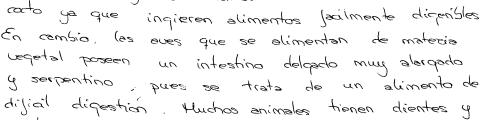 corto ya que ingieren alimentos facilmente digeribles
En cambio, las aves que se alimentan de materia
vegetal poseen un intestino delgado muy alargado
y serpentino, pues se trata de un alimento de
difícil digestión. Muchos animales tienen dientes y